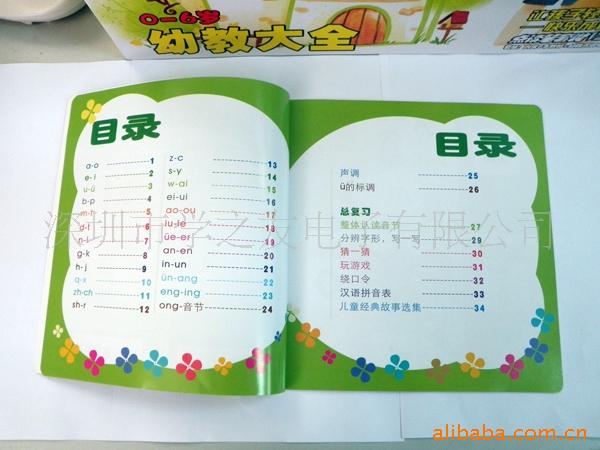 0-6岁
幼教大全
目录
a-o 1
e-i 2
u-ü 3
b-p 4
m-f 5
d-t 6
n-l 7
g-k 8
h-j 9
q-x 10
zh-ch 11
sh-r 12
z-c 13
s-y 14
w-ai 15
ei-ui 16
ao-ou 17
iu-ie 18
üe-er 19
an-en 20
in-un 21
ün-ang 22
eng-ing 23
ong-音节 24
目录
声调 25
ü的标调 26
总复习
整体认读音节 27
分辨字形，写一写 29
猜一猜 30
玩游戏 31
绕口令 32
汉语拼音表 33
儿童经典故事选集 34
深圳市学之友电子有限公司
alibaba.com.cn